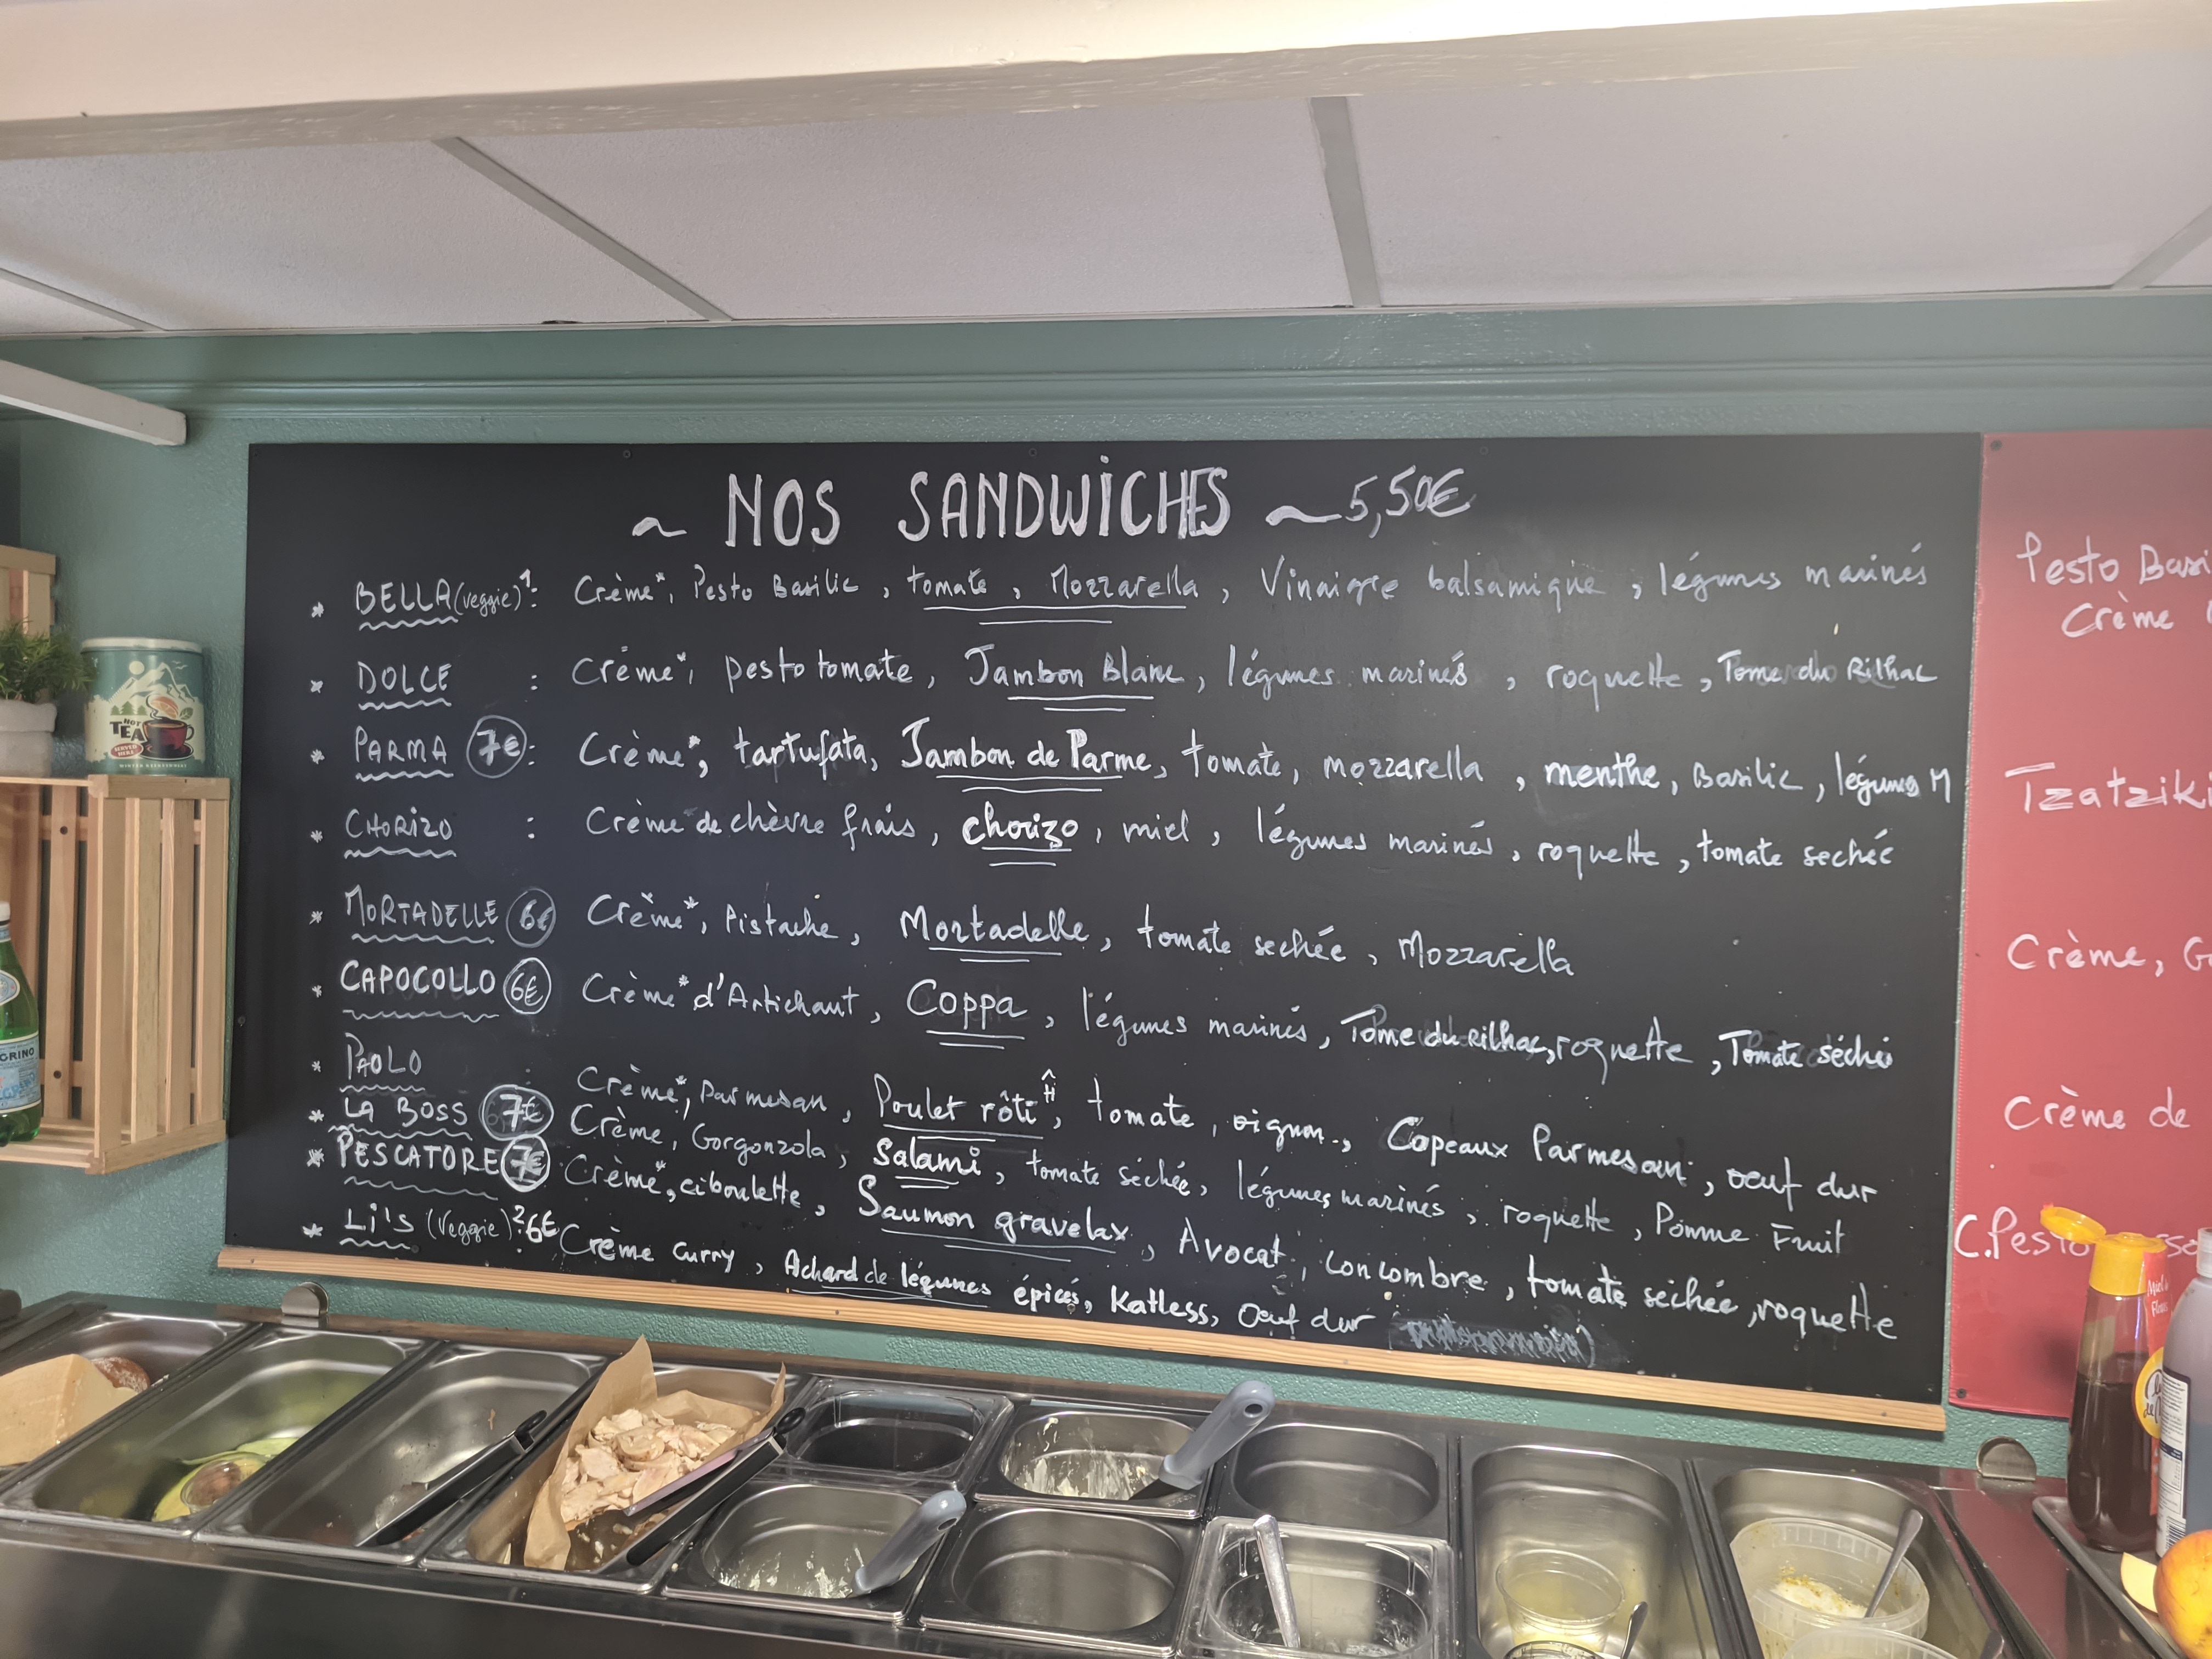 ~ NOS SANDWICHES ~ 5,50€
* BELLA (veggie)¹ : Crème*, Pesto Basilic, tomate, Mozzarella, Vinaigre balsamique, légumes marinés
* DOLCE : Crème*, pesto tomate, Jambon Blanc, légumes marinés, roquette, Tome du Rilhac
* PARMA 7€ : Crème*, tartufata, Jambon de Parme, tomate, mozzarella, menthe, Basilic, légumes M
* CHORIZO : Crème de chèvre frais, chorizo, miel, légumes marinés, roquette, tomate sechée
* MORTADELLE 6€ Crème*, Pistache, Mortadelle, tomate sechée, Mozzarella
* CAPOCOLLO 6€ Crème* d'Artichaut, Coppa, légumes marinés, Tome du Rilhac, roquette, Tomate séché
* PAOLO : Crème*, Parmesan, Poulet rôti Ĥ, tomate, oignon, Copeaux Parmesan, oeuf dur
* LA BOSS 7€ Crème, Gorgonzola, Salami, tomate séchée, légumes marinés, roquette, Pomme Fruit
* PESCATORE 7€ Crème*, ciboulette, Saumon gravelax, Avocat, concombre, tomate séchée, roquette
* Li's (Veggie)² : 6€ Crème curry, Achard de légumes épicés, Katless, Oeuf dur
Pesto Basi
Crème
Tzatziki
Crème, G
Crème de
C.Pesto
HOT
TEA
SERVED
HERE
GRINO
Miel